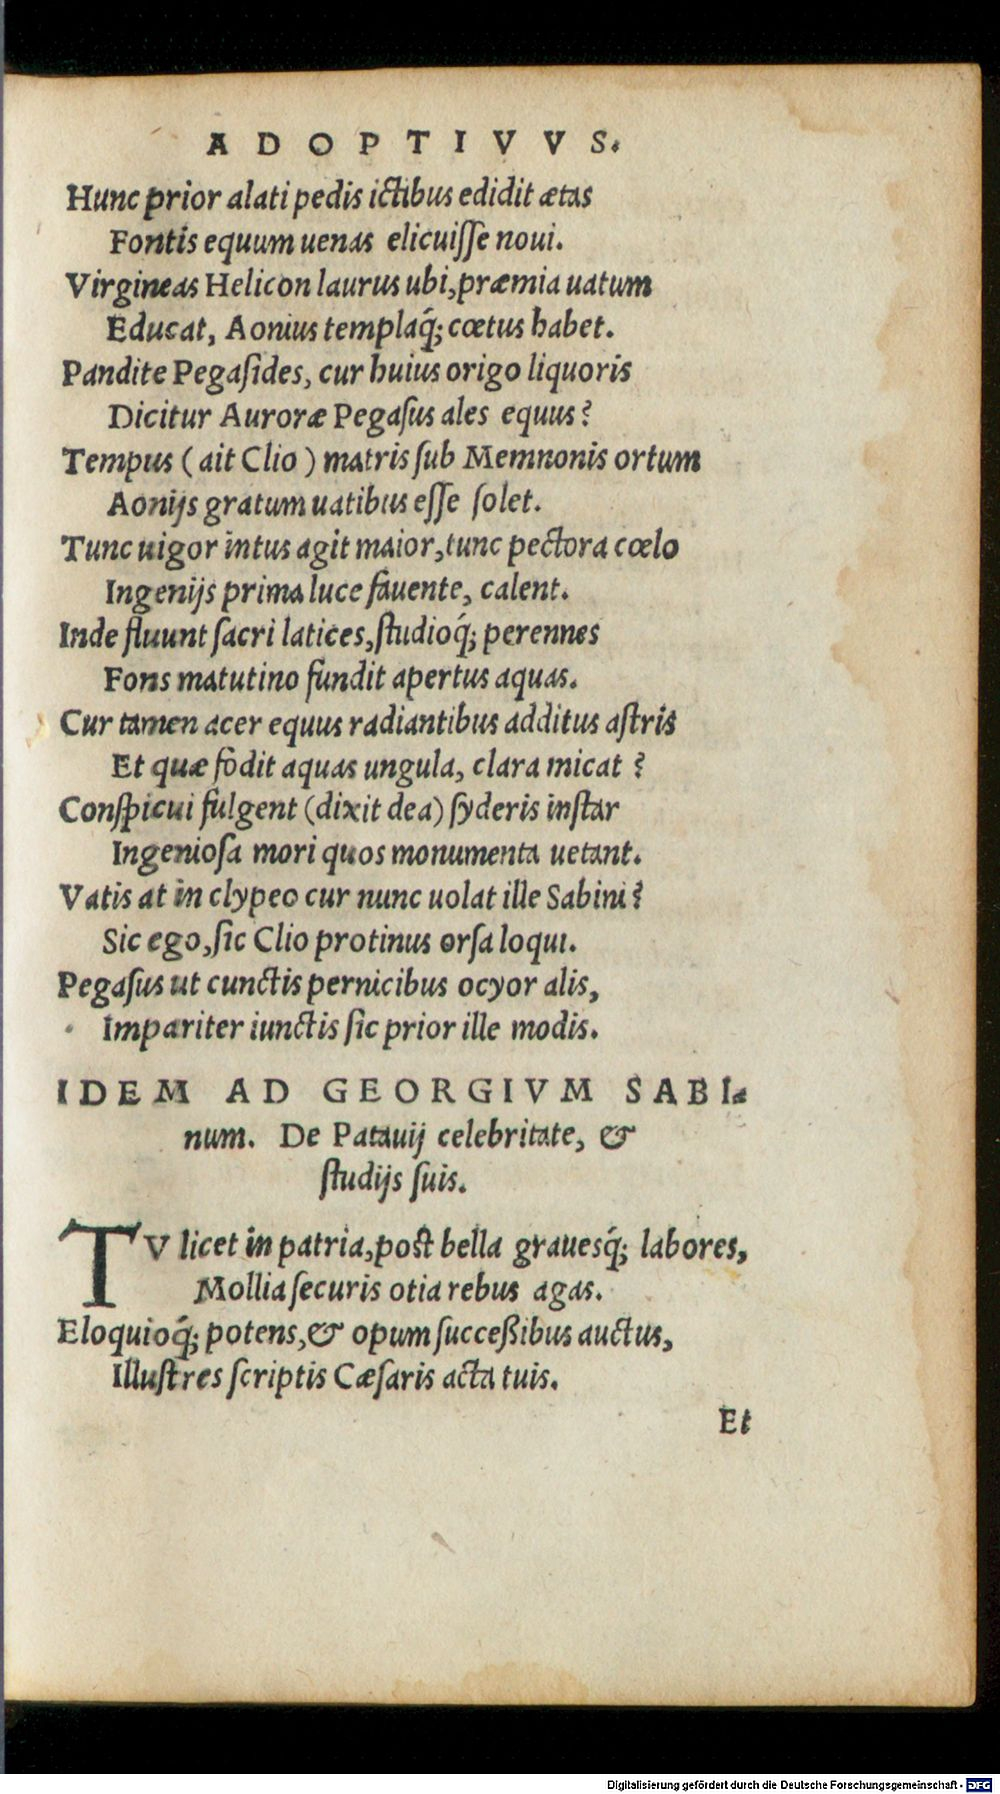 ADOPTIVVS.
Hunc prior alati pedis ictibus edidit ætas
Fontis equum uenas elicuiſſe noui.
Virgineas Helicon laurus ubi, præmia uatum
Educat, Aonius templaq́; cœtus habet.
Pandite Pegaſides, cur huius origo liquoris
Dicitur Auroræ Pegaſus ales equus?
Tempus (ait Clio) matris ſub Memnonis ortum
Aonijs gratum uatibus eſſe ſolet.
Tunc uigor intus agit maior, tunc pectora cœlo
Ingenijs prima luce fauente, calent.
Inde fluunt ſacri latices, ſtudioq́; perennes
Fons matutino fundit apertus aquas.
Cur tamen acer equus radiantibus additus aſtris
Et quæ fodit aquas ungula, clara micat?
Conſpicui fulgent (dixit dea) ſyderis inſtar
Ingenioſa mori quos monumenta uetant.
Vatis at in clypeo cur nunc uolat ille Sabini?
Sic ego, ſic Clio protinus orſa loqui.
Pegaſus ut cunctis pernicibus ocyor alis,
Impariter iunctis ſic prior ille modis.
IDEM AD GEORGIVM SABI-
num. De Patauij celebritate, &
ſtudijs ſuis.
TV licet in patria, poſt bella grauesq́; labores,
Mollia ſecuris otia rebus agas.
Eloquioq́; potens, & opum ſucceßibus auctus,
Illuſtres ſcriptis Cæſaris acta tuis.
Et
Digitalisierung gefördert durch die Deutsche Forschungsgemeinschaft - DFG